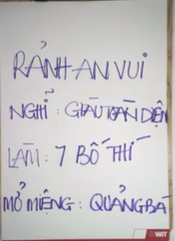 RẢNH AN VUI
NGHỈ : GIÀU TOÀN DIỆN
LÀM : 7 BỐ THÍ
MỞ MIỆNG : QUẢNG BÁ